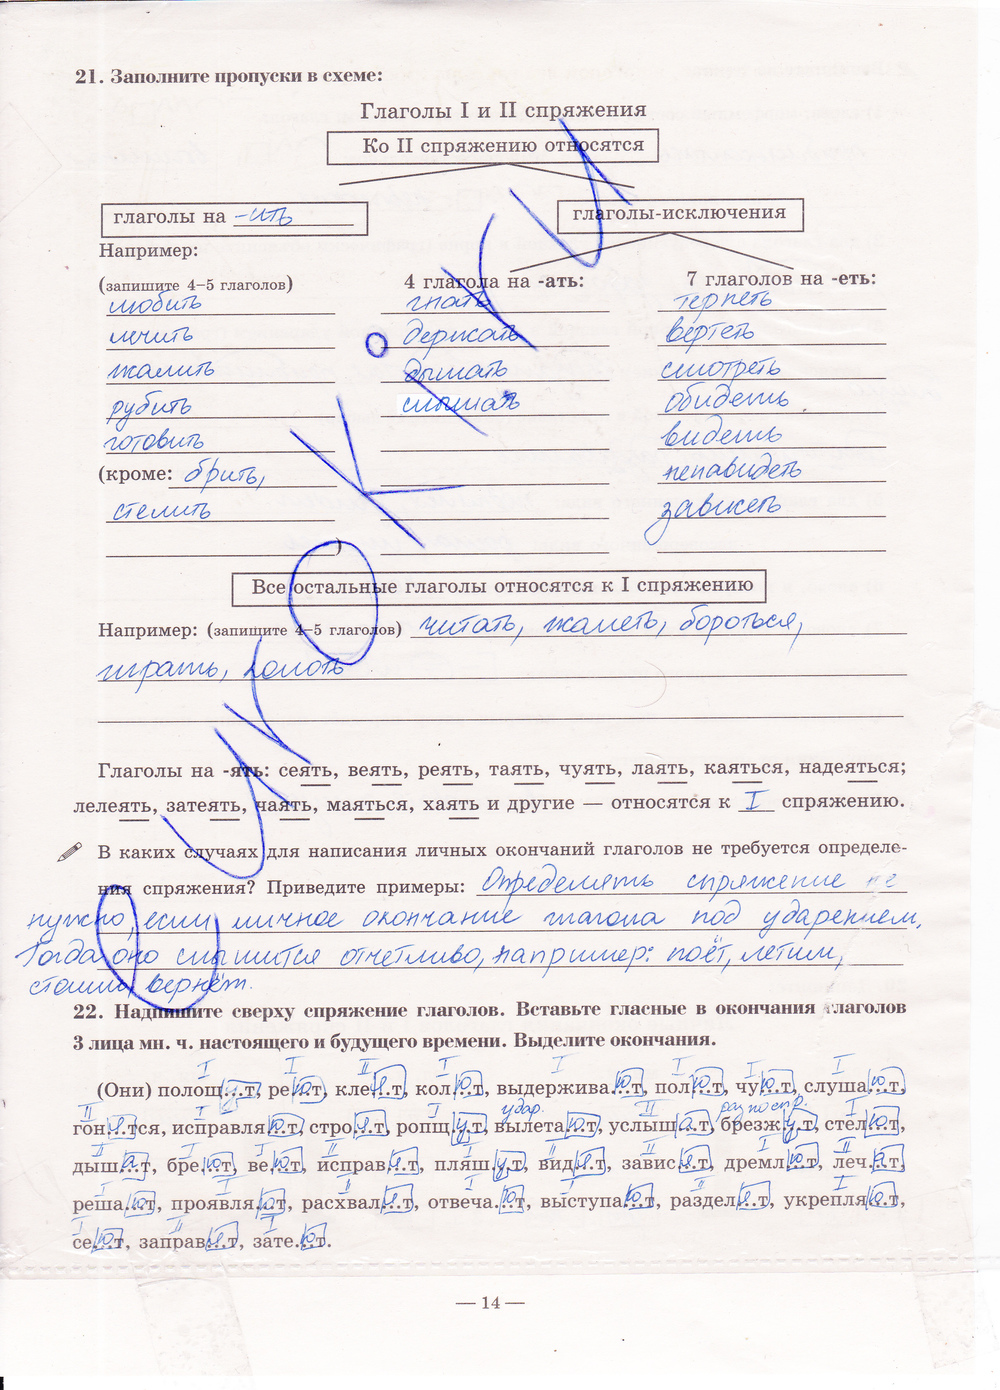 21. Заполните пропуски в схеме:
Глаголы I и II спряжения
Ко II спряжению относятся
глаголы на -ить
глаголы-исключения
Например:
(запишите 4–5 глаголов)
любить
лечить
жалить
рубить
готовить
(кроме: брить,
стелить
)
4 глагола на -ать:
гнать
держать
дышать
слышать
7 глаголов на -еть:
терпеть
вертеть
смотреть
обидеть
видеть
ненавидеть
зависеть
Все остальные глаголы относятся к I спряжению
Например: (запишите 4–5 глаголов) читать, жалеть, бороться,
играть, полоть
Глаголы на -ять: сеять, веять, реять, таять, чуять, лаять, каяться, надеяться;
лелеять, затеять, чаять, маяться, хаять и другие — относятся к I спряжению.
В каких случаях для написания личных окончаний глаголов не требуется определе-
ния спряжения? Приведите примеры: Определять спряжение не
нужно, если личное окончание глагола под ударением,
Тогда оно слышится отчетливо, например: поёт, летим,
стоим, вернёт.
22. Надпишите сверху спряжение глаголов. Вставьте гласные в окончания глаголов
3 лица мн. ч. настоящего и будущего времени. Выделите окончания.
I I II I I I I I
(Они) полощ..у..т, ре..ю..т, кле..я..т, кол..ю..т, выдержива..ю..т, пол..ю..т, чу..ю..т, слуша..ю..т,
гон..я..тся, исправля..ю..т, стро..я..т, ропщ..у..т, вылета..ю..т, услыш..а..т, брезж..у..т, стел..ю..т,
дыш..а..т, бре..ю..т, ве..ю..т, исправ..я..т, пляш..у..т, вид..я..т, завис..я..т, дремл..ю..т, леч..а..т,
реша..ю..т, проявля..ю..т, расхвал..я..т, отвеча..ю..т, выступа..ю..т, раздел..я..т, укрепля..ю..т,
се..ю..т, заправ..я..т, зате..ю..т.
— 14 —
РИСКОКИКИ